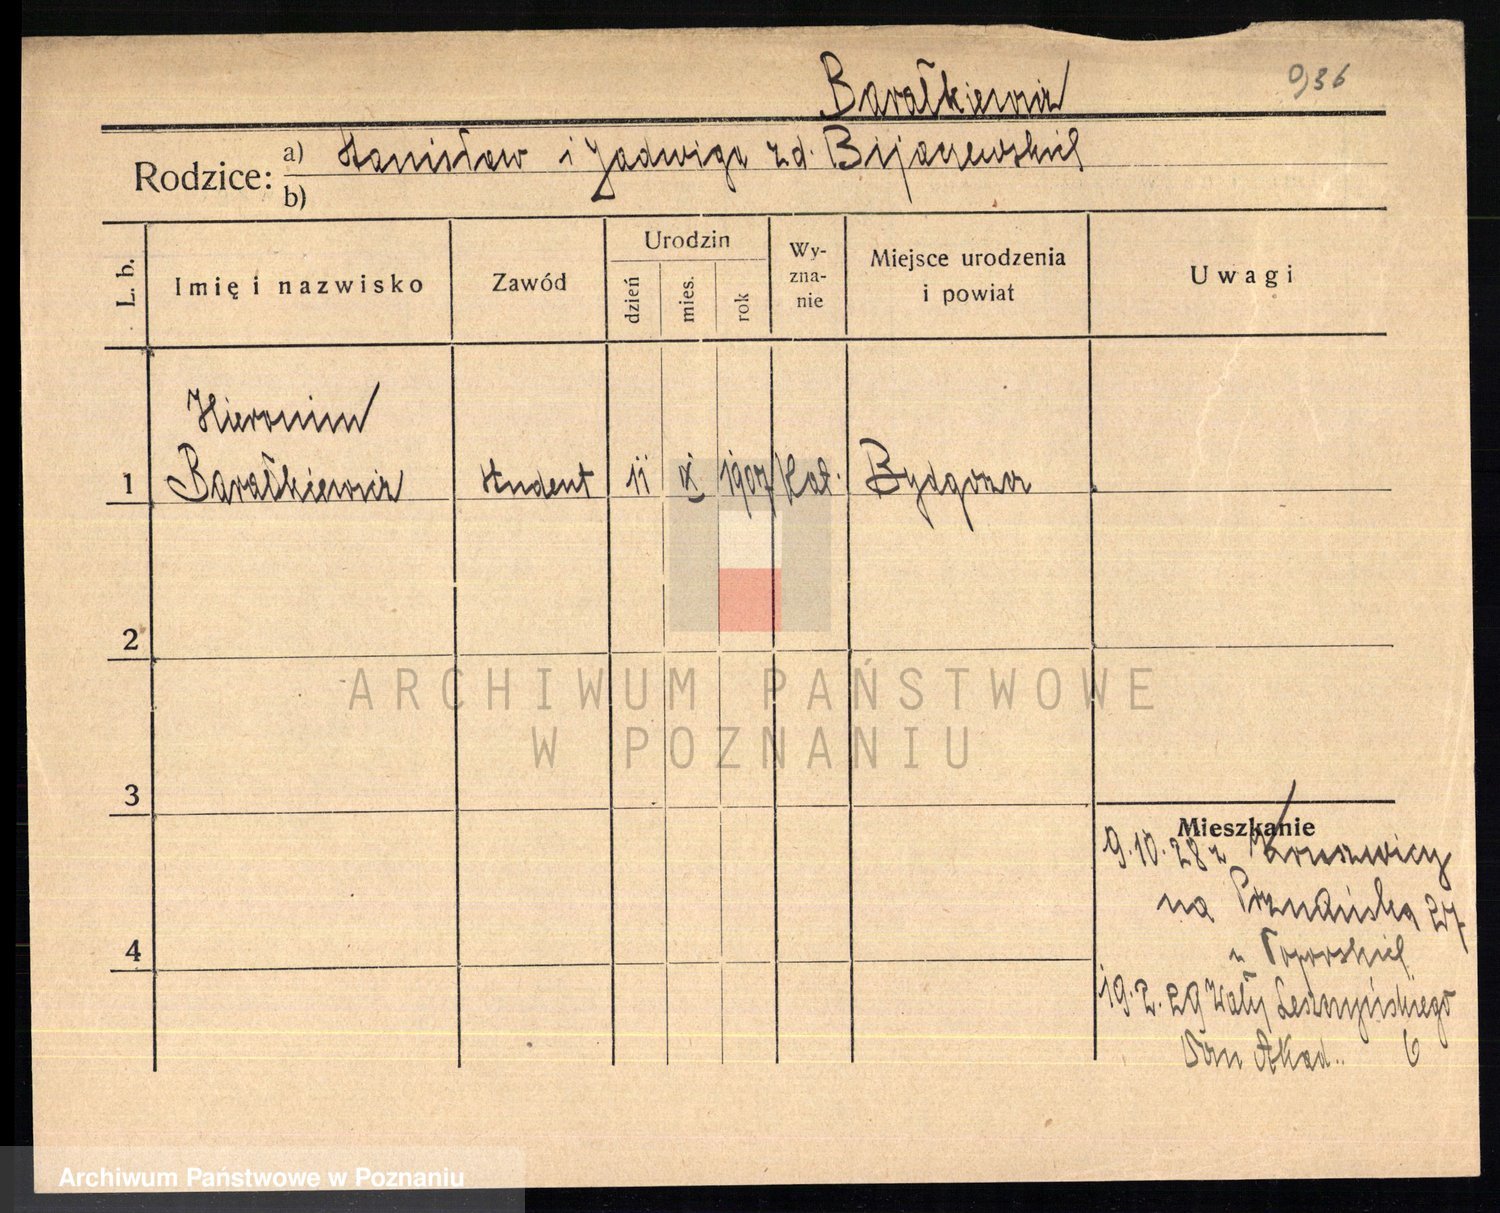 Barałkiewicz
936
Rodzice: a) Stanisław i Jadwiga z d. Bijaczewskich
b)
L. b.
Imię i nazwisko
Zawód
Urodzin
dzień
mies.
rok
Wy-
zna-
nie
Miejsce urodzenia
i powiat
Uwagi
Hieronim
1 Barałkiewicz student 11 IX 1907 Kat. Bydgoszcz
2
3
4
ARCHIWUM PAŃSTWOWE
W POZNANIU
Mieszkanie
9.10.28 z Kruszwicy
na Poznańska 27
u Toporskich
19.2.29 Wały Leszczyńskiego
Dom Akad.. 6
Archiwum Państwowe w Poznaniu